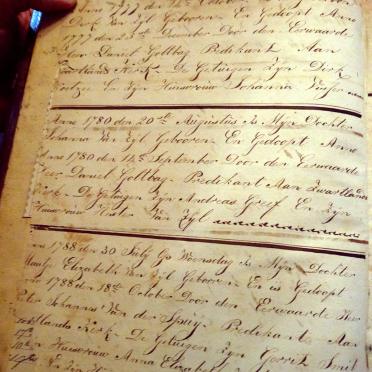 Anno 1777 den 12de October
Derk Van Zyl Geboren En Gedoopt Anno
1777 den 25te December Door den Eerwaarde
Heer Daniel Goltbag Predikant Aan
Zwartlands Kerk De Getuigen Zyn Dirk
Coetzee En Zyn Huisvrouw Johanna
Anno 1780 den 20te Augustus Is Myn Dochter
Johanna Van Zyl Geboren En Gedoopt Anno
Anno 1780 den 14te September Door den Eerwaarde
Heer Daniel Goltbag Predikant Aan Zwartlands
Kerk De Getuigen Zyn Andreas Greef En Zyn
Huisvrouw Hester Van Zyl
Anno 1788 den 30 July Op Woensdag Is Myn Dochter
Elizabeth Van Zyl Geboren En is Gedoopt
Anno 1788 den 18te October Door den Eerwaarde Heer
Peter Johannes Van der Spuy Predikante Aan
Zwartlands Kerk De Getuigen Zyn Gerrit Smit
En Zyn Huisvrouw Anna Elizabeth